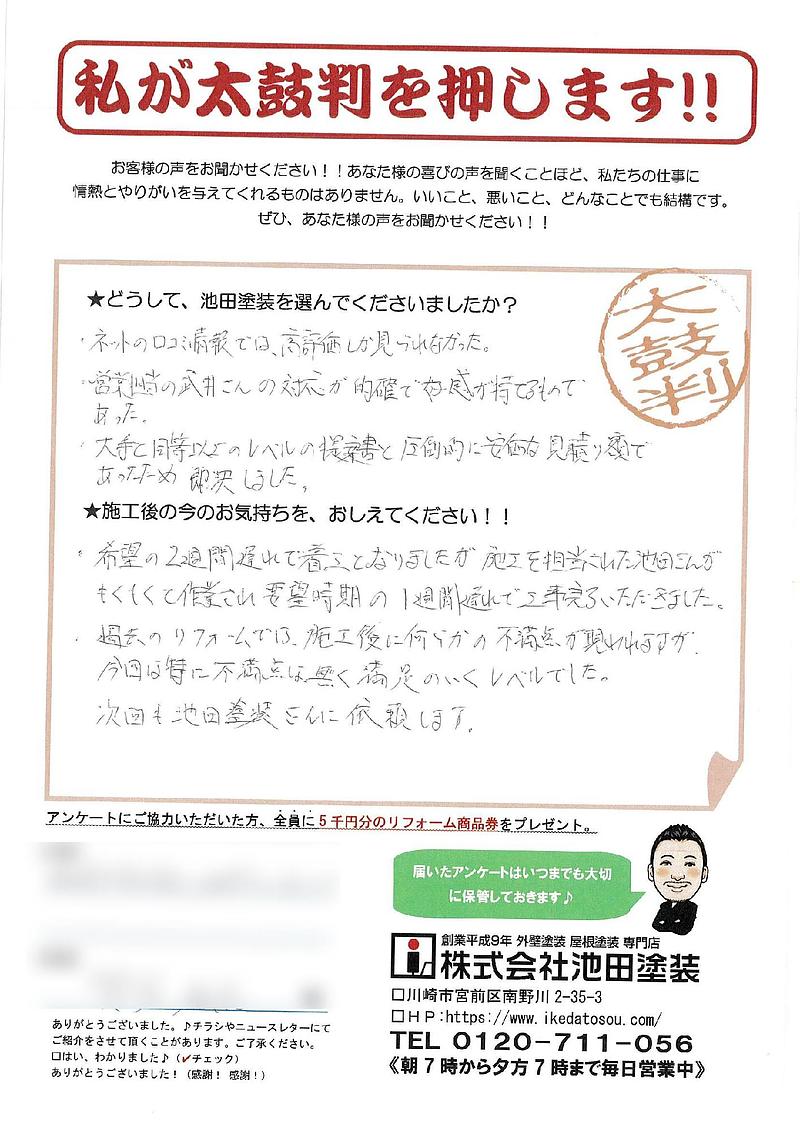 私が太鼓判を押します!!
お客様の声をお聞かせください！！あなた様の喜びの声を聞くことほど、私たちの仕事に
情熱とやりがいを与えてくれるものはありません。いいこと、悪いこと、どんなことでも結構です。
ぜひ、あなた様の声をお聞かせください！！
太鼓判
★どうして、池田塗装を選んでくださいましたか？
・ネットの口コミ情報では、高評価しか見られなかった。
・営業担当の武井さんの対応が的確で好感が持てるもので
あった。
・大手と同等以上のレベルの提案書と圧倒的に安価な見積り額で
あったため即決しました。
★施工後の今のお気持ちを、おしえてください！！
・希望の2週間遅れで着工となりましたが施工を担当された池田さんが
もくもくと作業され要望時期の1週間遅れで工事完了いただきました。
・過去のリフォームでは、施工後に何らかの不満点が現われますが、
今回は特に不満点は無く満足のいくレベルでした。
次回も池田塗装さんに依頼します。
アンケートにご協力いただいた方、全員に5千円分のリフォーム商品券をプレゼント。
届いたアンケートはいつまでも大切
に保管しておきます♪
創業平成9年 外壁塗装 屋根塗装 専門店
株式会社池田塗装
□川崎市宮前区南野川2-35-3
□HP:https://www.ikedatosou.com/
TEL 0120-711-056
《朝7時から夕方7時まで毎日営業中》
ありがとうございました。♪チラシやニュースレターにて
ご紹介をさせて頂くことがあります。ご了承ください。
□はい、わかりました♪（✔チェック）
ありがとうございました！（感謝！感謝！）